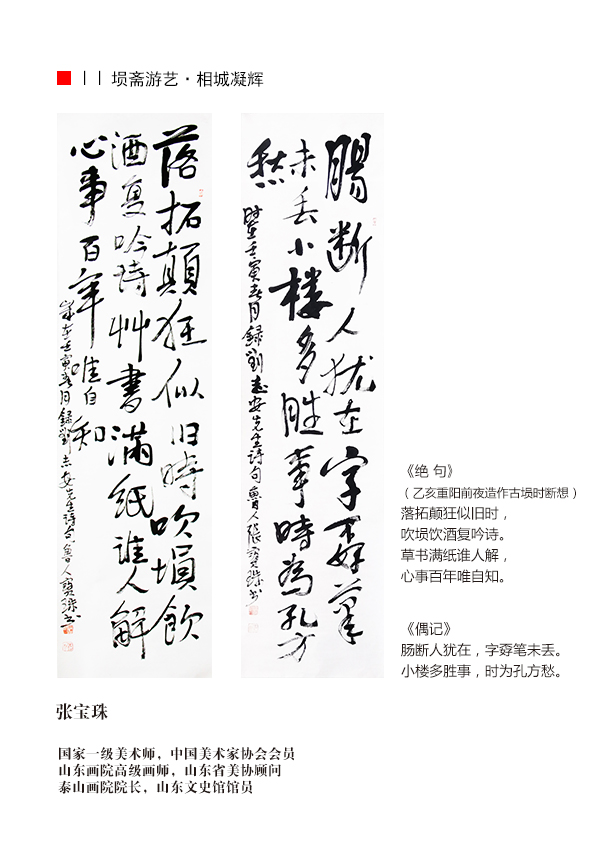 埙斋游艺·相城凝辉
落拓颠狂似旧時吹埙飲
酒复吟诗艸書满纸谁人解
心事百年唯自知
歲在壬寅春月録劉志安先生詩句魯人寶珠书
腸断人犹在字孬筆
未丢小楼多胜事時為孔方
愁
时在壬寅春月録劉志安先生詩句魯人張寶珠书
《绝 句》
（乙亥重阳前夜造作古埙时断想）
落拓颠狂似旧时，
吹埙饮酒复吟诗。
草书满纸谁人解，
心事百年唯自知。
《偶记》
肠断人犹在，字孬笔未丢。
小楼多胜事，时为孔方愁。
张宝珠
国家一级美术师，中国美术家协会会员
山东画院高级画师，山东省美协顾问
泰山画院院长，山东文史馆馆员